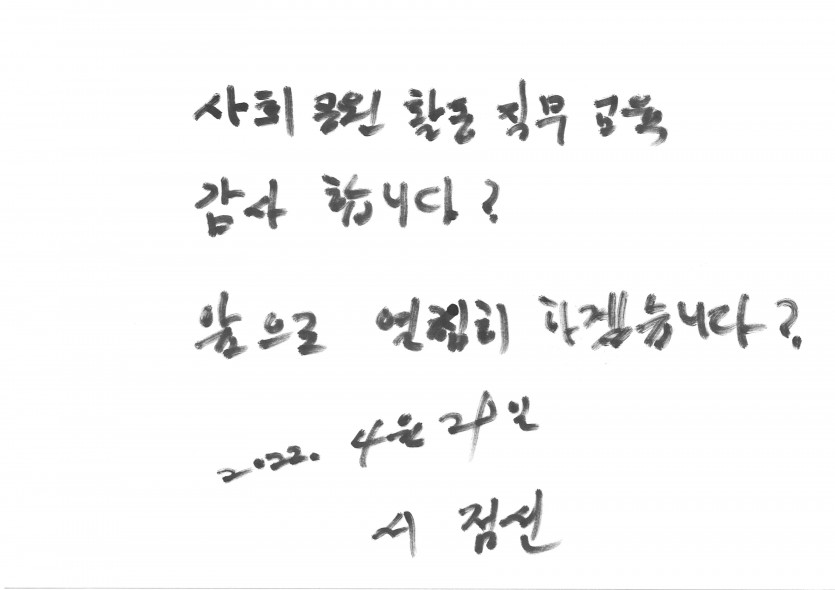 사회 공원 활동 직무 교육
감사 합니다?
앞으로 열심히 하겠습니다?
2022. 4월 29일
서 점선